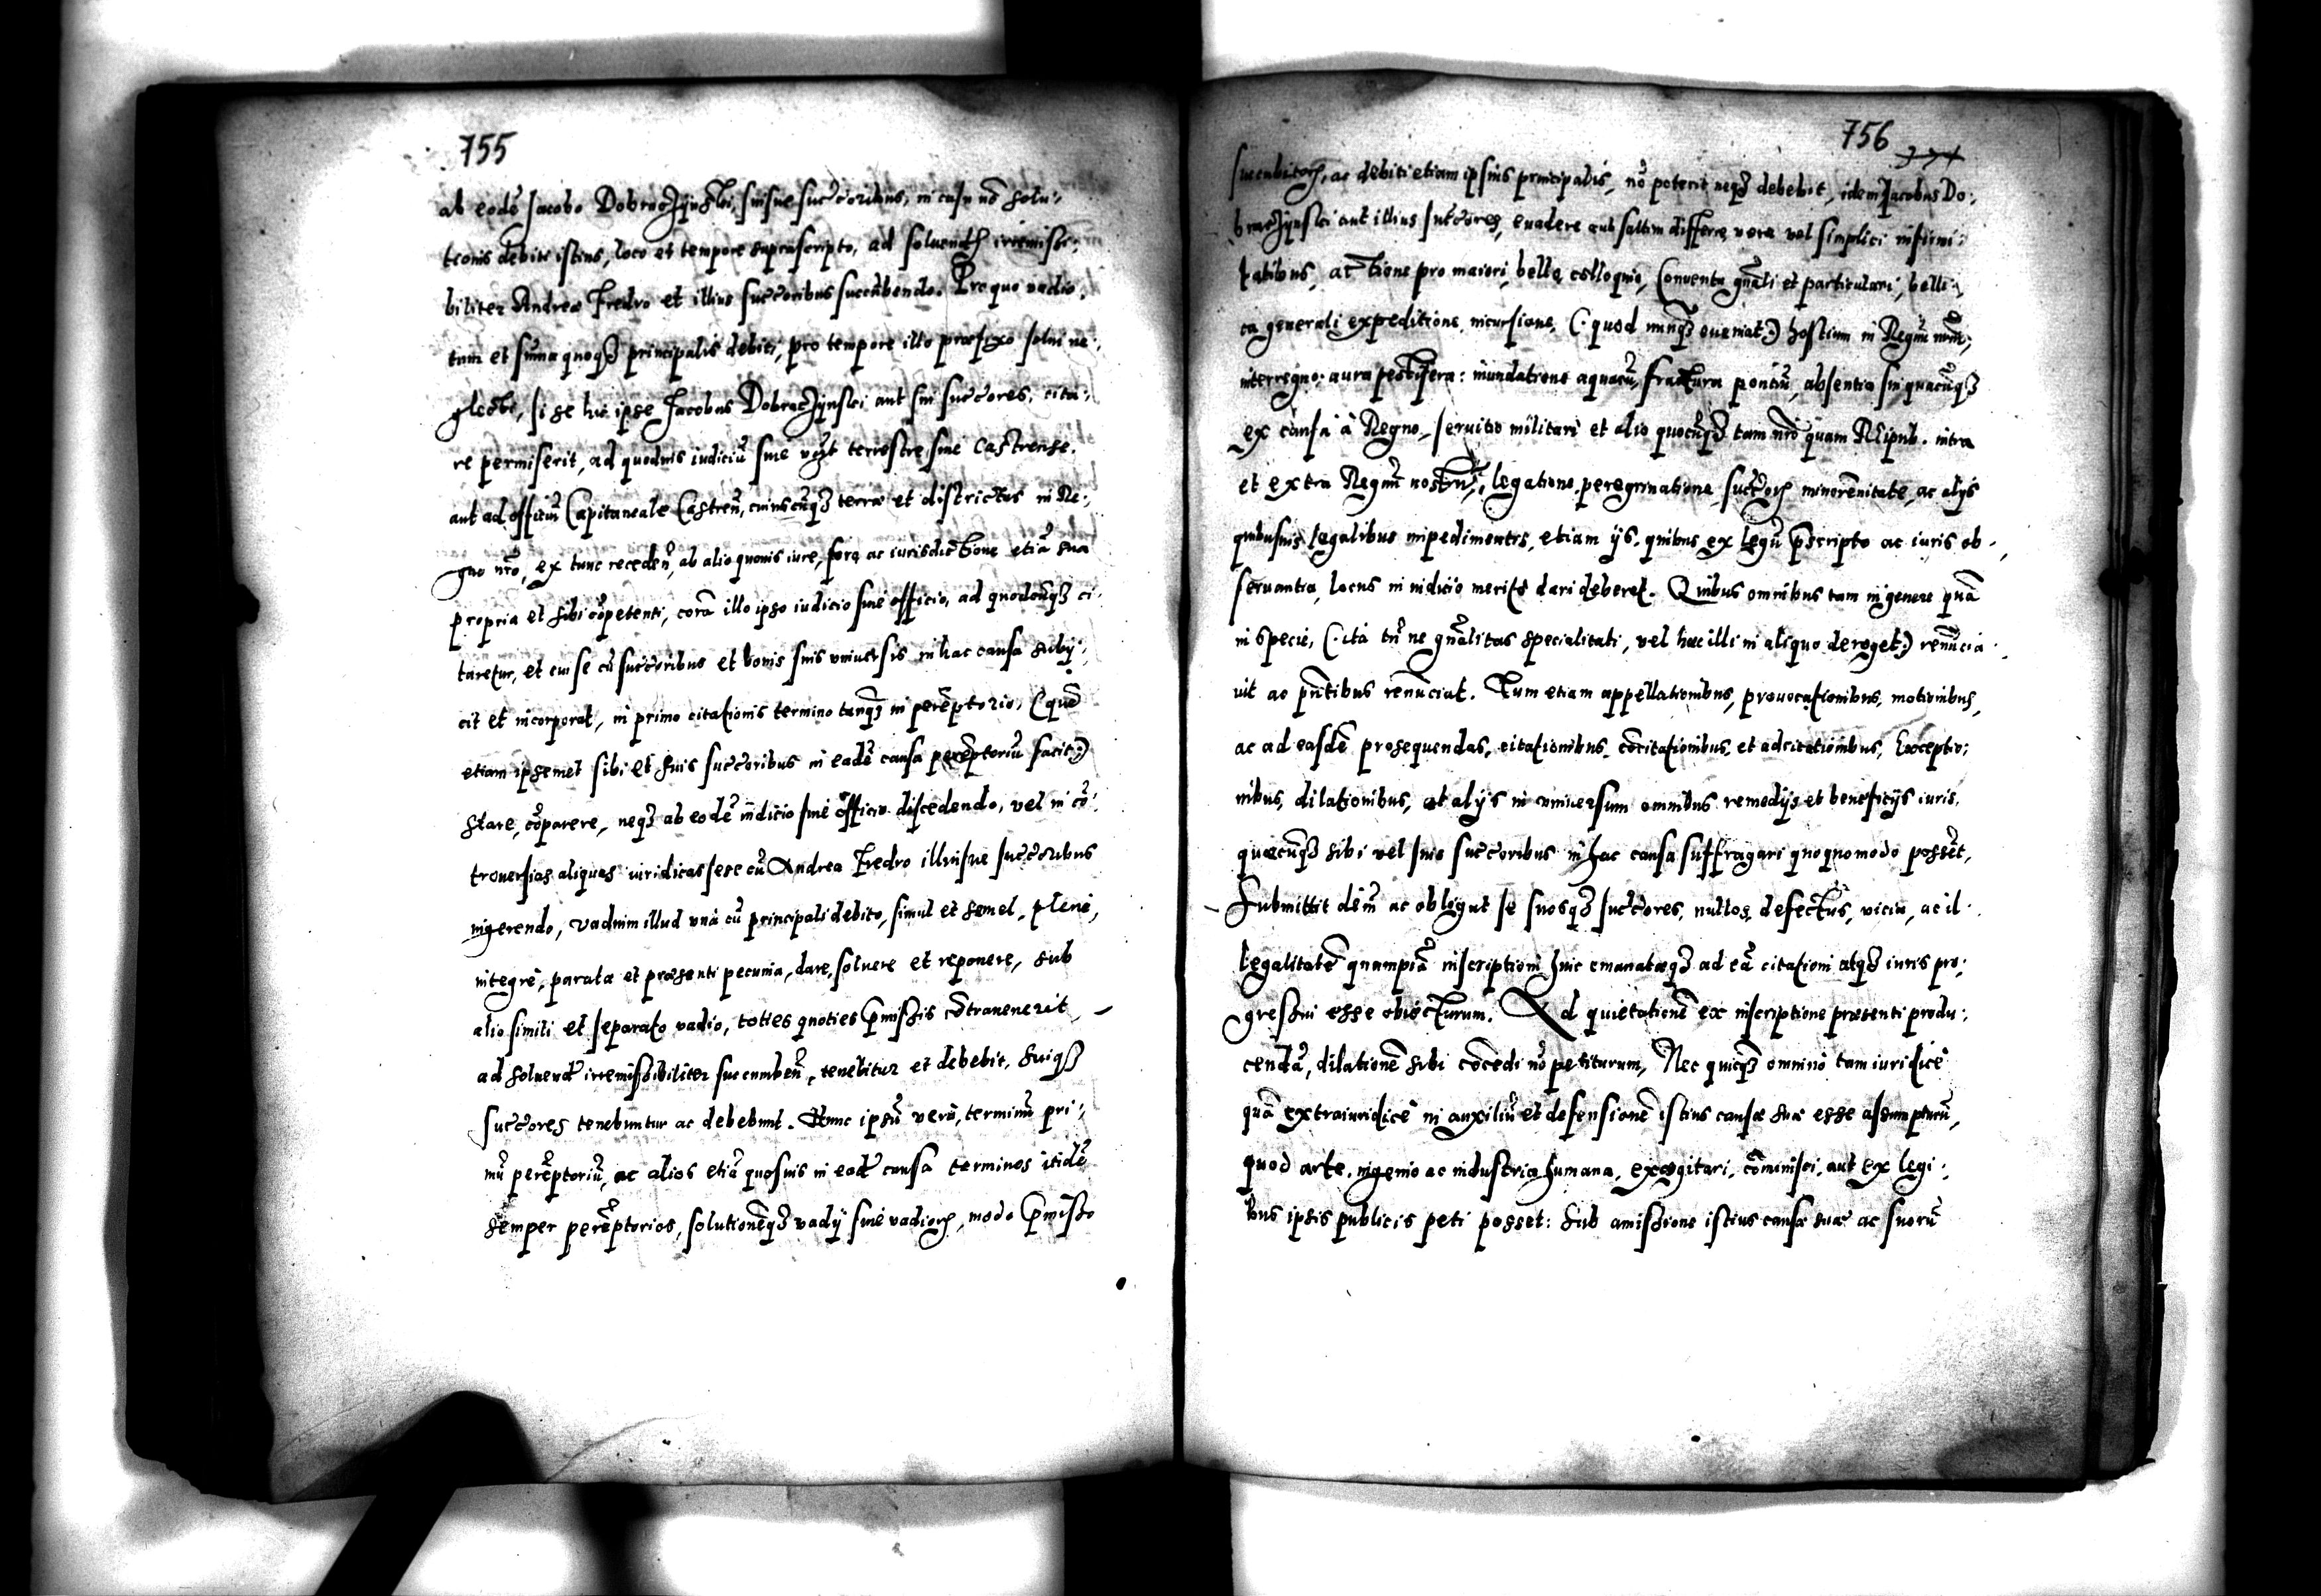 755
ab eodē Jacobo Dobraczynski, suisue succ̄oribus, in casu nō solu:
tionis debiti istius, loco et tempore suprascripto, ad soluend̄ irremissi:
biliter Andreæ Fredro et illius succ̄oribus succūbendo. Pro quo vadio,
tum et sum̄a quoq3 principalis debiti, pro tempore illo præfixo solui ne:
glecti, si se hic ipse Jacobus Dobraczynski aut sui succ̄ores, cita:
re permiserit, ad quoduis iudiciū siue terrestre siue Castrense.
aut ad officiū Capitaneale Castreñ, cuiuscūq3 terræ et districtus in Re:
gno nr̄o, ex tunc receden̄, ab alio quouis iure, foro ac iurisdictione etiā sua
propria et sibi cōpetenti, corā illo ipso iudicio siue officio, ad quodcūq3 ci:
taretur, et cui se cū succ̄oribus et bonis suis vniuersis in hac causa subij:
cit et incorporat, in primo citationis termino tanq̄3 in perēptorio, (: quē
etiam ipsemet sibi et suis succ̄oribus in eadē causa perēptoriū facit :)
stare, cōparere, neq3 ab eodē iudicio siue officio discedendo, vel in cō:
trouersias aliquas iuridicas sese cū Andrea Fredro illiusue succ̄oribus
ingerendo, vadium illud vnà cū principali debito, simul et semel, plenè,
integrè, parata et præsenti pecunia, dare, soluere et reponere, sub
alio simili et separato vadio, toties quoties p̄missis cōtrauenerit,
ad soluend̄ irremissibiliter succumben̄, tenebitur et debebit, suiq3
succ̄ores tenebuntur ac debebunt. Hunc ipsū verò, terminū pri:
mū perēptoriū, ac alios etiā quosuis in ead̄ causa terminos itidē
semper perēptorios, solutionēq3 vadij siue vadiorȝ, modo p̄misso
756
succubitorȝ, ac debiti etiam ipsius principalis, nō poterit neq3 debebit, idem Jacobus Do:
braczynski aut illius succ̄ores, euadere aut saltim differre, vera vel simplici infirmi:
tatibus, actione pro maiori, bello, colloquio, Conuentu gn̄ali et particulari, belli:
ca generali expeditione, incursione, (: quod nunq̄3 eueniat :) hostium in Regnū nr̄m,
interregno: aura pestifera: inundatione aquarū, fractura pontiū, absentia sui quacūq3
ex causa à Regno, seruitio militari et alio quocūq3 tam nr̄o quam REipub. intra
et extra Regnū nostrū, legatione, peregrinatione, succ̄orȝ minorēnitate, ac alijs
quibusuis legalibus impedimentis, etiam ijs, quibus ex legū p̄scripto ac iuris ob:
seruantia, locus in iudicio meritò dari deberet. Quibus omnibus tam in genere quā
in specie, (: ità tn̄ ne gn̄alitas specialitati, vel hæc illi in aliquo deroget :) renūcia:
uit ac pn̄tibus renūciat. Tum etiam appellationibus, prouocationibus, motionibus,
ac ad easdē prosequendas, citationibus, cōcitationibus, et adcitationibus, Exceptio:
nibus, dilationibus, et alijs in vniuersum omnibus remedijs et beneficijs iuris,
quæcūq3 sibi vel suis succ̄oribus in hac causa suffragari quoquomodo possēt,
Submittit ac obligat se suosq3 succ̄ores, nullos, defectus, vicia, ac il:
legalitatē quampiā inscriptioni huic emanatæq3 ad eā citationi atq3 iuris pro:
gressui esse obiecturum. Ad quietationē ex inscriptione præsenti produ:
cendā, dilationē sibi cōcedi nō petiturum, Nec quicq̄3 omninò tam iuridicè
quā extraiuridicè in auxiliū et defensionē istius causæ suæ esse assumpturū,
quod arte, ingenio ac industria humana, excogitari, cōminisci, aut ex legi:
bus ipsis publicis peti posset: Sub amissione istius causæ suæ ac suorū